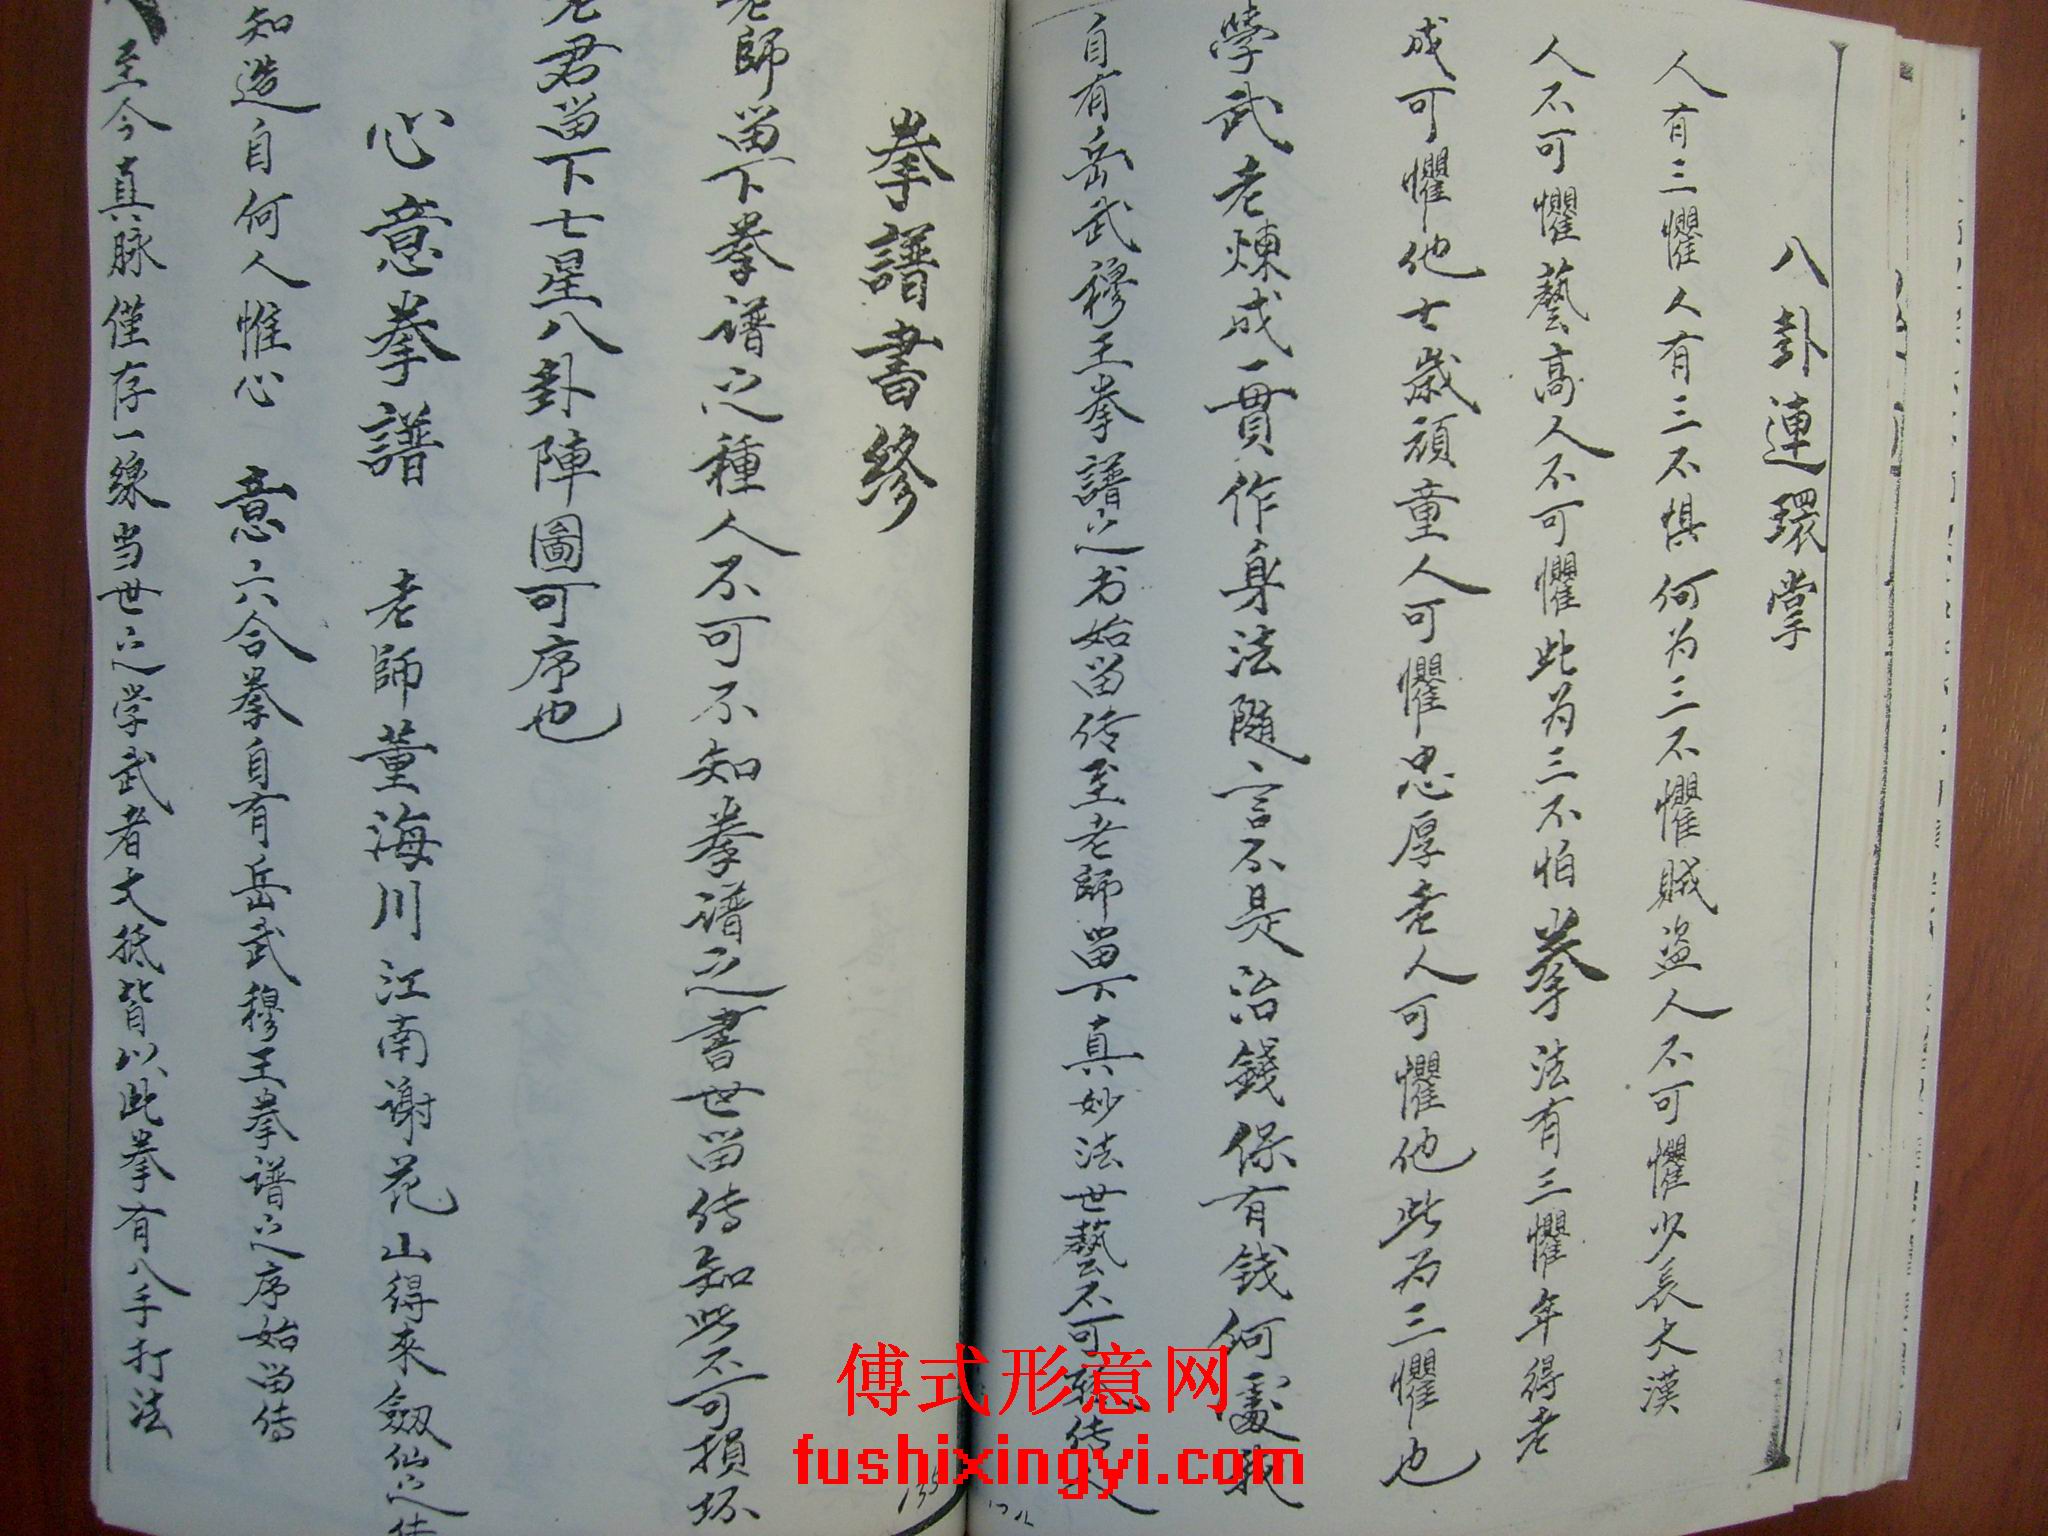 八卦連環掌
人有三懼人有三不惧何为三不懼賊盗人不可懼少長大漢
人不可懼藝高人不可懼此为三不怕拳法有三懼年得老
成可懼他士歲頑童人可懼忠厚老人可懼他此为三懼也
學武老煉成一貫作身法隨言不是治錢保有钱何處我
自有岳武穆王拳譜之为始留传至老師留下真妙法世藝不可乱传人
拳譜書終
老師留下拳谱之種人不可不知拳谱之書世留传知此不可損坏
老君留下七星八卦陣圖可序也
心意拳譜 老師董海川江南谢花山得來劔仙之传
知造自何人惟心 意六合拳自有岳武穆王拳谱之序始留传
至今真脉僅存一線当世之学武者大抵皆以此拳有八手打法
135
傅式形意网
fushixingyi.com